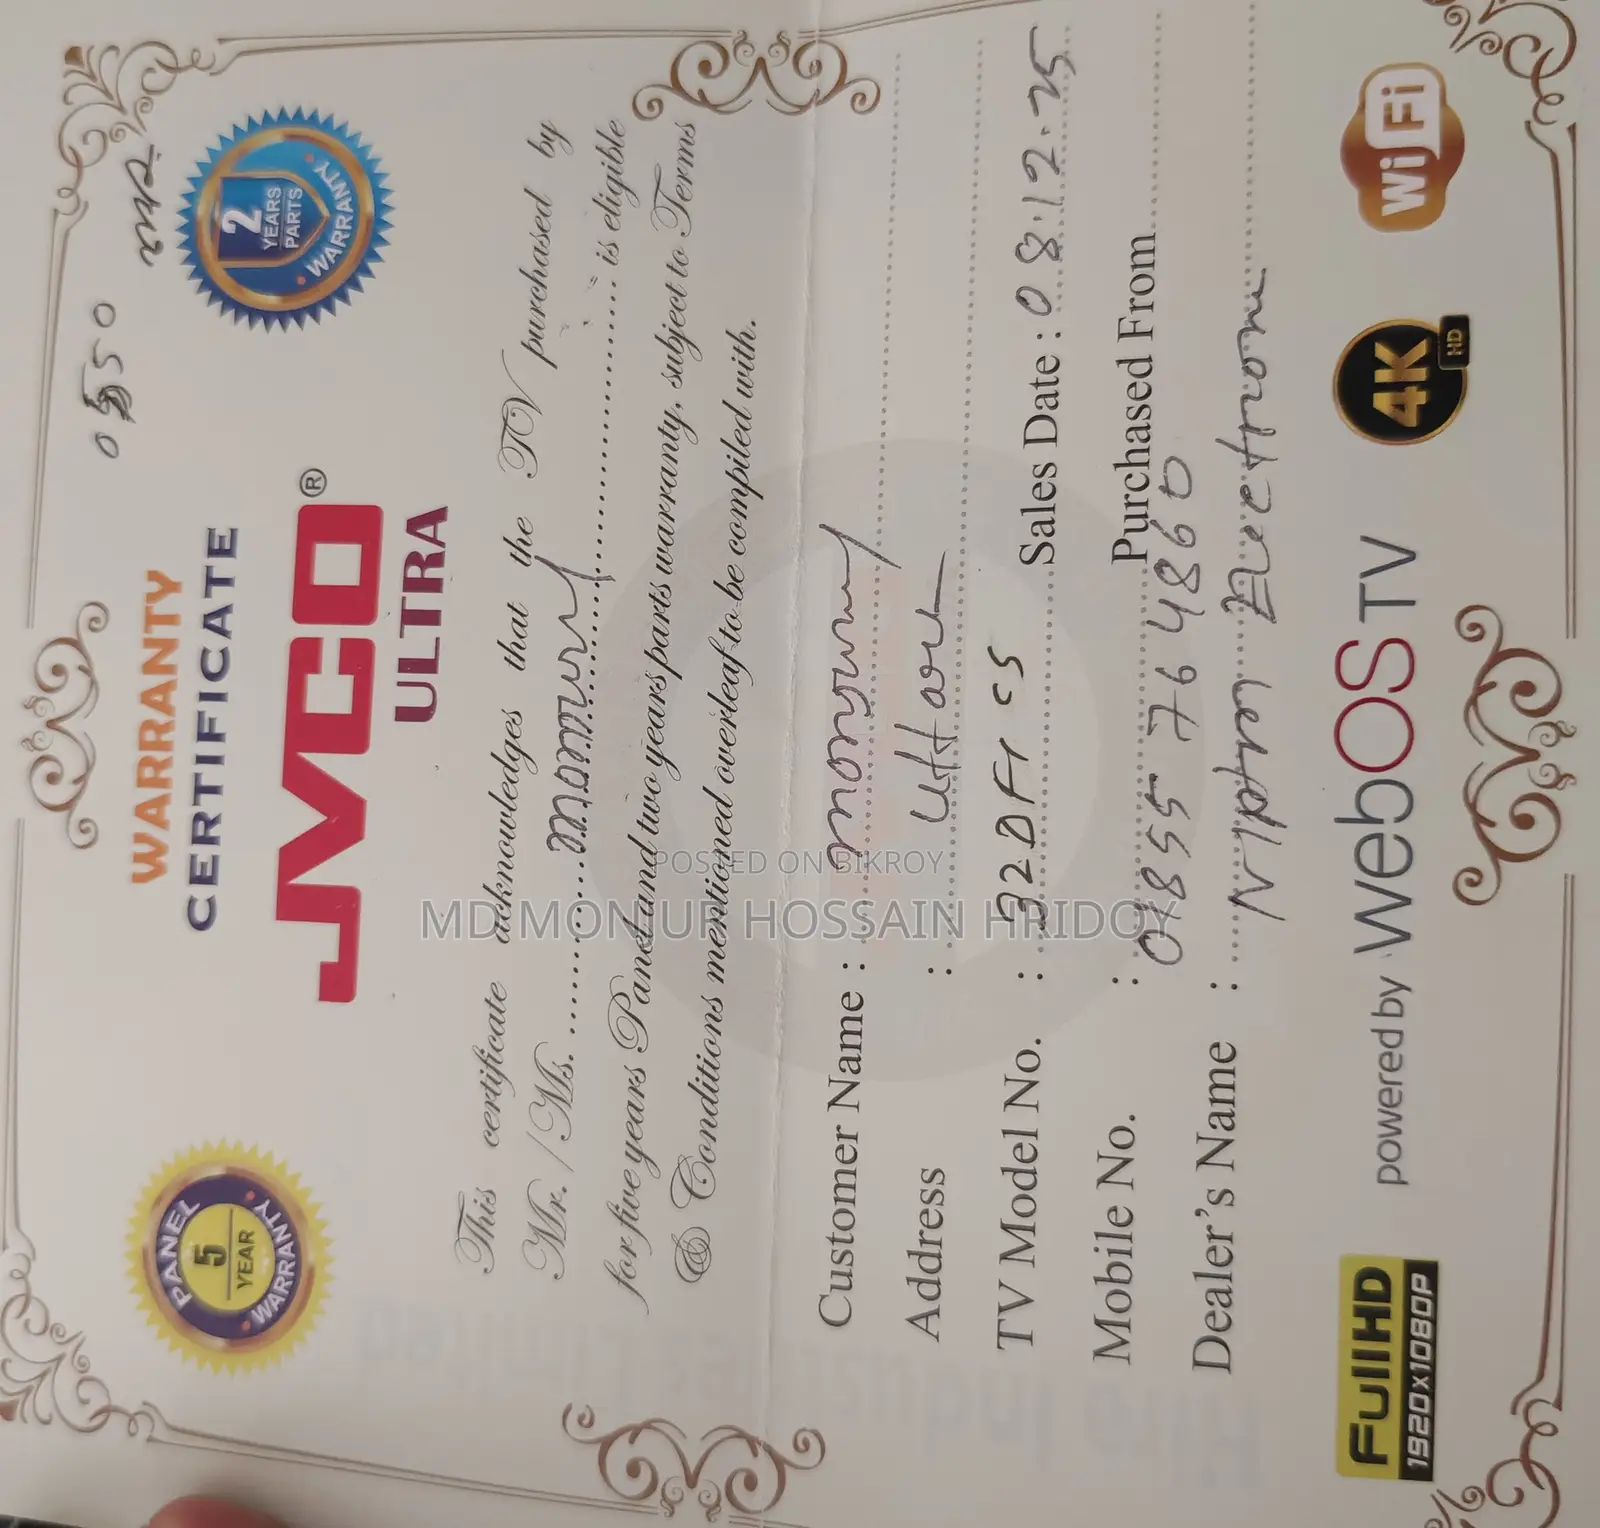 0550
WARRANTY
CERTIFICATE
PANEL
5
YEAR
WARRANTY
2
YEARS
PARTS
WARRANTY
JMCO®
ULTRA
This certificate acknowledges that the TV purchased by
Mr. / Ms. ........................ is eligible
for five years Panel and two years parts warranty, subject to Terms
& Conditions mentioned overleaf to be compiled with.
POSTED ON BIKROY
MD MONUR HOSSAIN HRIDOY
Customer Name :
Address : Uttara
TV Model No. : 32DF1 CS Sales Date : 08.12.25
Mobile No. : 01855 764860 Purchased From
Dealer's Name : Electronic
FullHD
1920x1080P
powered by webOS TV
4K
HD
WiFi